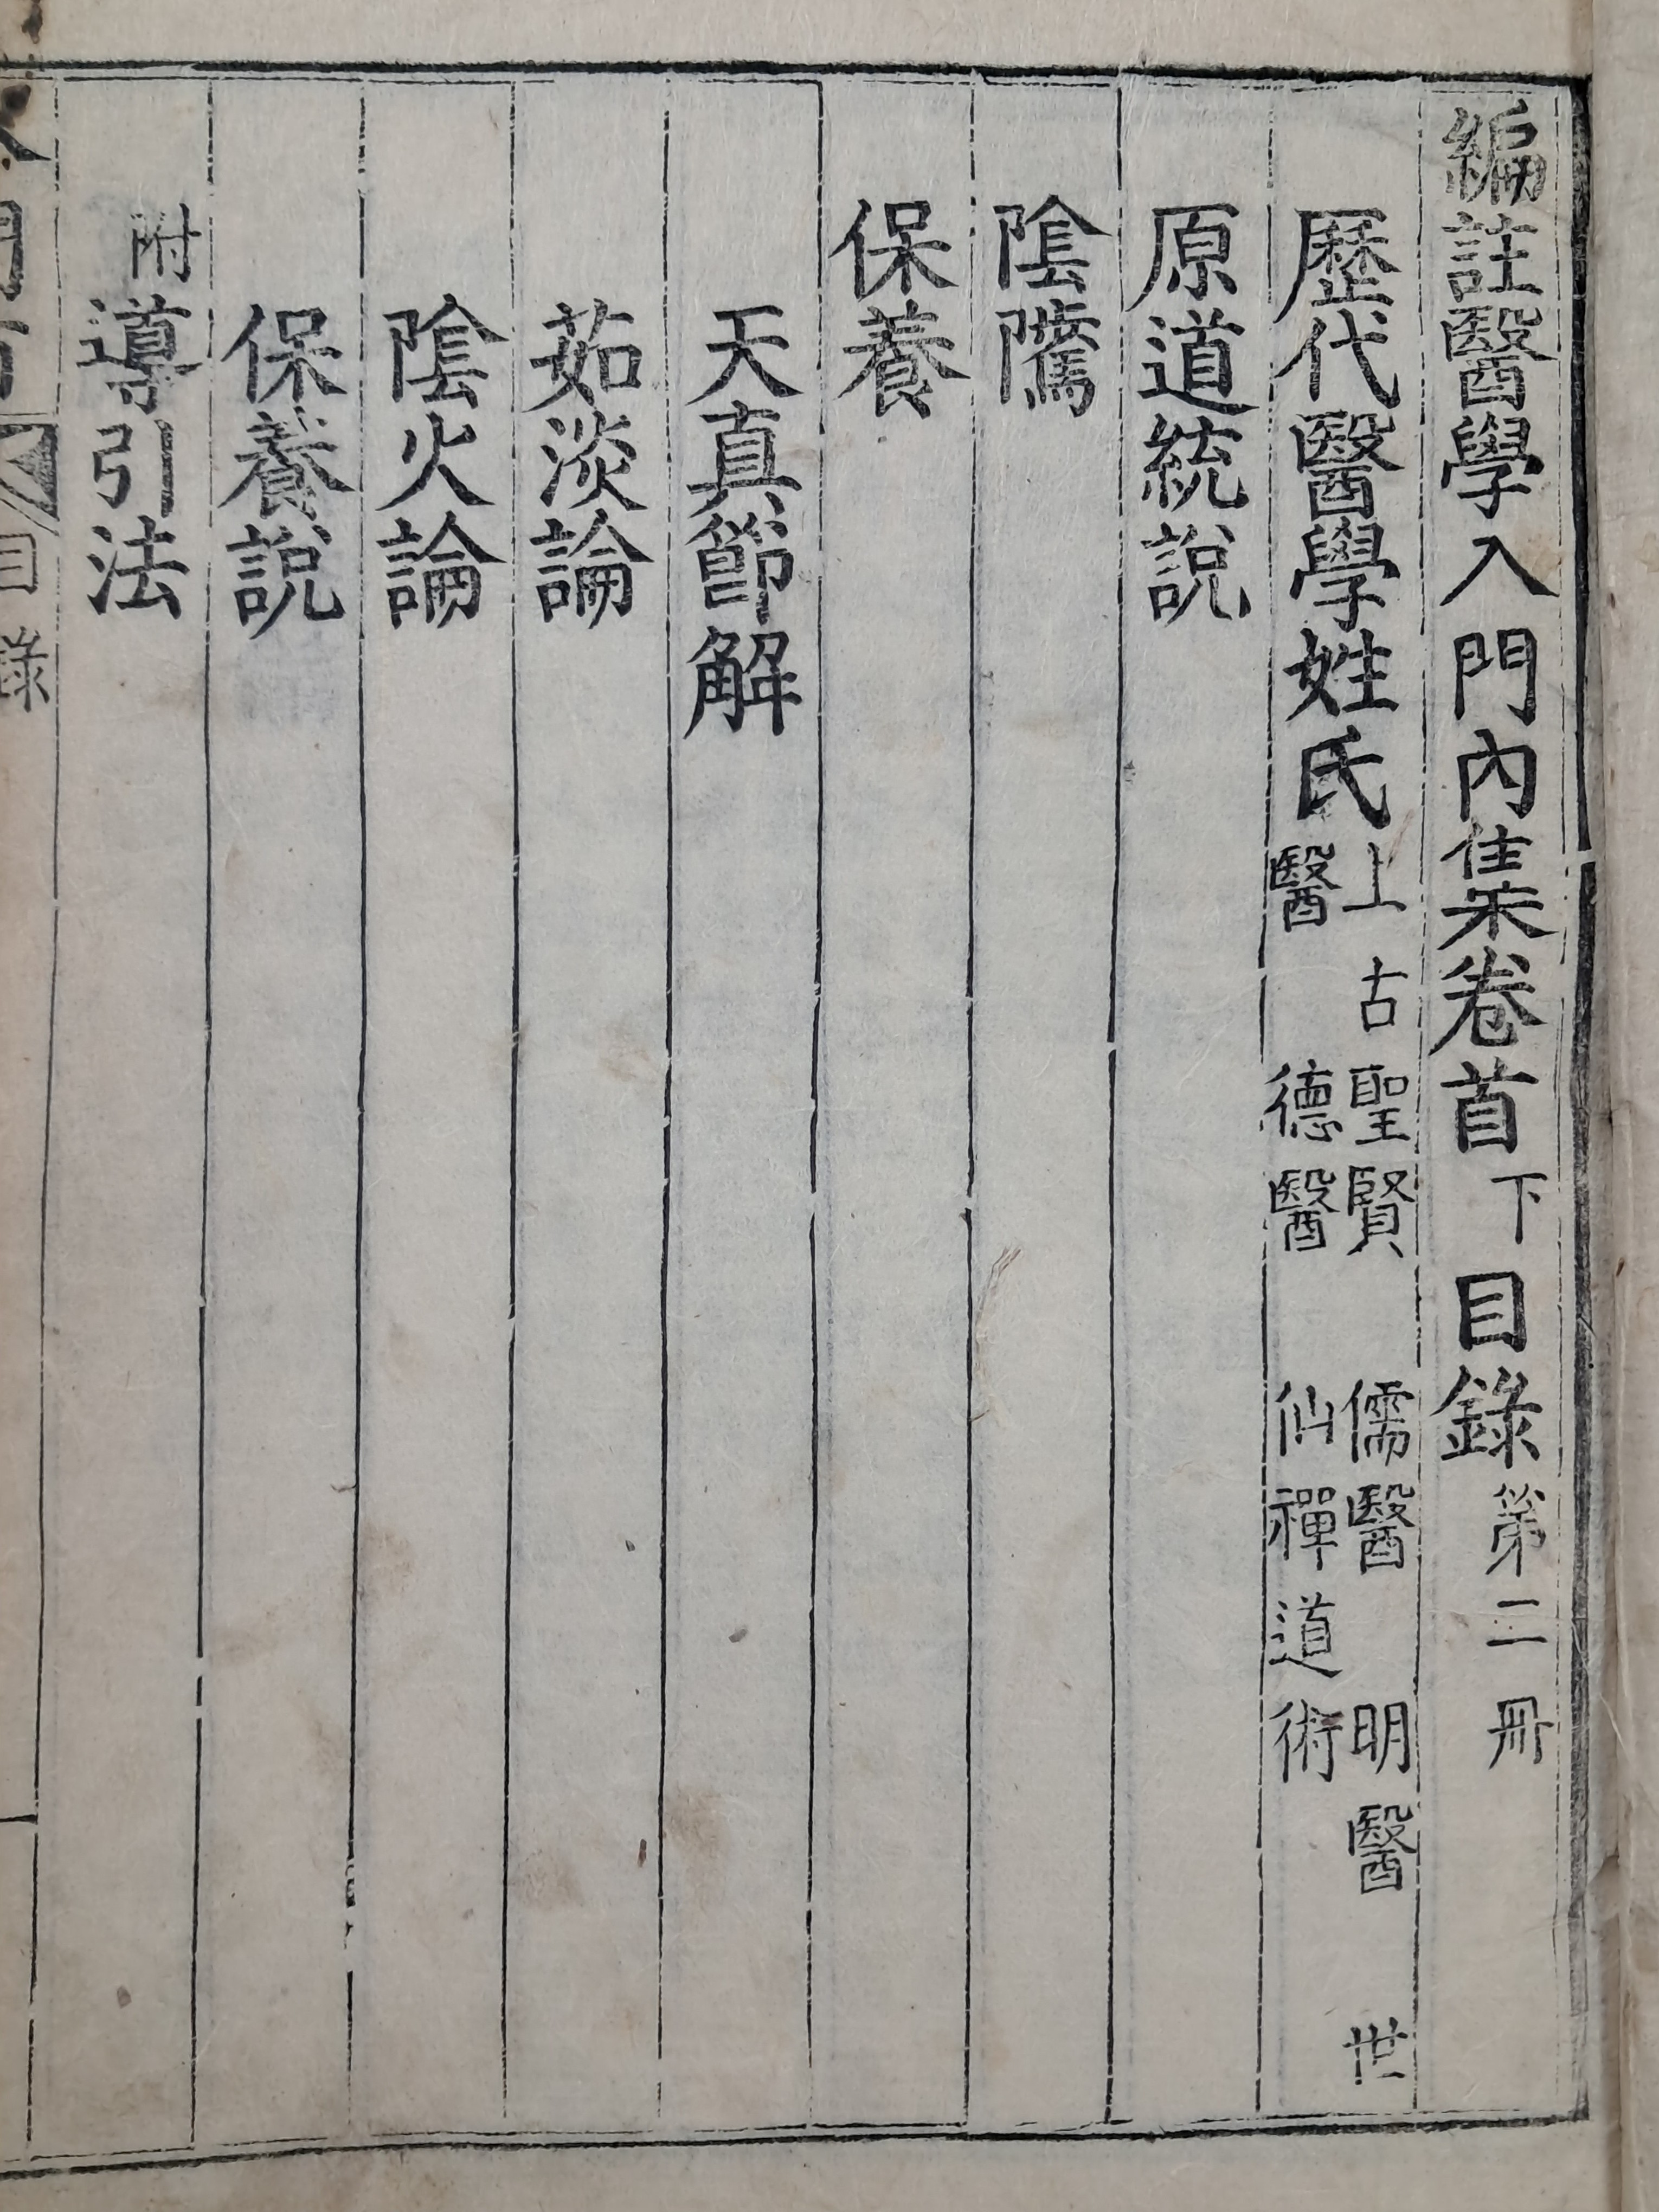 編註醫學入門內集卷首下 目錄第二冊
歷代醫學姓氏 上古聖賢 儒醫 明醫 世
醫 德醫 仙禪道術
原道統說
陰騭
保養
天真節解
茹淡論
陰火論
保養說
附導引法
目錄